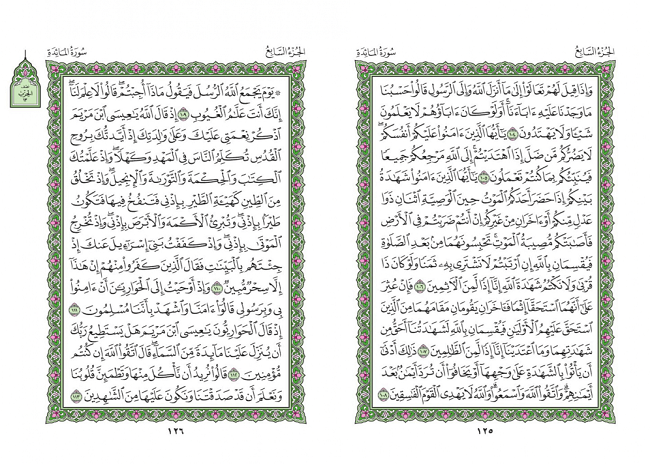 الجزء السابع
سورة المائدة
وَإِذَا قِيلَ لَهُمْ تَعَالَوْا۟ إِلَىٰ مَآ أَنزَلَ ٱللَّهُ وَإِلَى ٱلرَّسُولِ قَالُوا۟ حَسْبُنَا
مَا وَجَدْنَا عَلَيْهِ ءَابَآءَنَآ أَوَلَوْ كَانَ ءَابَآؤُهُمْ لَا يَعْلَمُونَ
شَيْـًٔا وَلَا يَهْتَدُونَ ١٠٤ يَـٰٓأَيُّهَا ٱلَّذِينَ ءَامَنُوا۟ عَلَيْكُمْ أَنفُسَكُمْ
لَا يَضُرُّكُم مَّن ضَلَّ إِذَا ٱهْتَدَيْتُمْ إِلَى ٱللَّهِ مَرْجِعُكُمْ جَمِيعًا
فَيُنَبِّئُكُم بِمَا كُنتُمْ تَعْمَلُونَ ١٠٥ يَـٰٓأَيُّهَا ٱلَّذِينَ ءَامَنُوا۟ شَهَـٰدَةُ
بَيْنِكُمْ إِذَا حَضَرَ أَحَدَكُمُ ٱلْمَوْتُ حِينَ ٱلْوَصِيَّةِ ٱثْنَانِ ذَوَا
عَدْلٍ مِّنكُمْ أَوْ ءَاخَرَانِ مِنْ غَيْرِكُمْ إِنْ أَنتُمْ ضَرَبْتُمْ فِى ٱلْأَرْضِ
فَأَصَـٰبَتْكُم مُّصِيبَةُ ٱلْمَوْتِ تَحْبِسُونَهُمَا مِنۢ بَعْدِ ٱلصَّلَوٰةِ
فَيُقْسِمَانِ بِٱللَّهِ إِنِ ٱرْتَبْتُمْ لَا نَشْتَرِى بِهِۦ ثَمَنًا وَلَوْ كَانَ ذَا
قُرْبَىٰ وَلَا نَكْتُمُ شَهَـٰدَةَ ٱللَّهِ إِنَّآ إِذًا لَّمِنَ ٱلْـَٔاثِمِينَ ١٠٦ فَإِنْ عُثِرَ
عَلَىٰٓ أَنَّهُمَا ٱسْتَحَقَّآ إِثْمًا فَـَٔاخَرَانِ يَقُومَانِ مَقَامَهُمَا مِنَ ٱلَّذِينَ
ٱسْتَحَقَّ عَلَيْهِمُ ٱلْأَوْلَيَـٰنِ فَيُقْسِمَانِ بِٱللَّهِ لَشَهَـٰدَتُنَآ أَحَقُّ مِن
شَهَـٰدَتِهِمَا وَمَا ٱعْتَدَيْنَآ إِنَّآ إِذًا لَّمِنَ ٱلظَّـٰلِمِينَ ١٠٧ ذَٰلِكَ أَدْنَىٰٓ
أَن يَأْتُوا۟ بِٱلشَّهَـٰدَةِ عَلَىٰ وَجْهِهَآ أَوْ يَخَافُوٓا۟ أَن تُرَدَّ أَيْمَـٰنٌۢ بَعْدَ
أَيْمَـٰنِهِمْ وَٱتَّقُوا۟ ٱللَّهَ وَٱسْمَعُوا۟ وَٱللَّهُ لَا يَهْدِى ٱلْقَوْمَ ٱلْفَـٰسِقِينَ ١٠٨
١٢٥
الجزء السابع
سورة المائدة
يَوْمَ يَجْمَعُ ٱللَّهُ ٱلرُّسُلَ فَيَقُولُ مَاذَآ أُجِبْتُمْ قَالُوا۟ لَا عِلْمَ لَنَآ
إِنَّكَ أَنتَ عَلَّـٰمُ ٱلْغُيُوبِ ١٠٩ إِذْ قَالَ ٱللَّهُ يَـٰعِيسَى ٱبْنَ مَرْيَمَ
ٱذْكُرْ نِعْمَتِى عَلَيْكَ وَعَلَىٰ وَٰلِدَتِكَ إِذْ أَيَّدتُّكَ بِرُوحِ
ٱلْقُدُسِ تُكَلِّمُ ٱلنَّاسَ فِى ٱلْمَهْدِ وَكَهْلًا وَإِذْ عَلَّمْتُكَ
ٱلْكِتَـٰبَ وَٱلْحِكْمَةَ وَٱلتَّوْرَىٰةَ وَٱلْإِنجِيلَ وَإِذْ تَخْلُقُ
مِنَ ٱلطِّينِ كَهَيْـَٔةِ ٱلطَّيْرِ بِإِذْنِى فَتَنفُخُ فِيهَا فَتَكُونُ
طَيْرًۢا بِإِذْنِى وَتُبْرِئُ ٱلْأَكْمَهَ وَٱلْأَبْرَصَ بِإِذْنِى وَإِذْ تُخْرِجُ
ٱلْمَوْتَىٰ بِإِذْنِى وَإِذْ كَفَفْتُ بَنِىٓ إِسْرَٰٓءِيلَ عَنكَ إِذْ
جِئْتَهُم بِٱلْبَيِّنَـٰتِ فَقَالَ ٱلَّذِينَ كَفَرُوا۟ مِنْهُمْ إِنْ هَـٰذَآ
إِلَّا سِحْرٌ مُّبِينٌ ١١٠ وَإِذْ أَوْحَيْتُ إِلَى ٱلْحَوَارِيِّـۧنَ أَنْ ءَامِنُوا۟
بِى وَبِرَسُولِى قَالُوٓا۟ ءَامَنَّا وَٱشْهَدْ بِأَنَّنَا مُسْلِمُونَ ١١١
إِذْ قَالَ ٱلْحَوَارِيُّونَ يَـٰعِيسَى ٱبْنَ مَرْيَمَ هَلْ يَسْتَطِيعُ رَبُّكَ
أَن يُنَزِّلَ عَلَيْنَا مَآئِدَةً مِّنَ ٱلسَّمَآءِ قَالَ ٱتَّقُوا۟ ٱللَّهَ إِن كُنتُم
مُّؤْمِنِينَ ١١٢ قَالُوا۟ نُرِيدُ أَن نَّأْكُلَ مِنْهَا وَتَطْمَئِنَّ قُلُوبُنَا
وَنَعْلَمَ أَن قَدْ صَدَقْتَنَا وَنَكُونَ عَلَيْهَا مِنَ ٱلشَّـٰهِدِينَ ١١٣
١٢٦